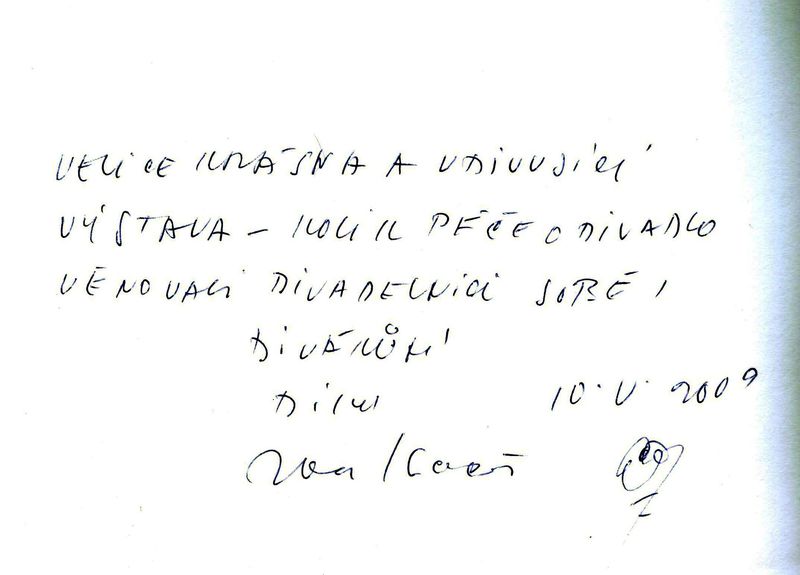 VELICE KRÁSNÁ A UDIVUJÍCÍ
VÝSTAVA – KOLIK PÉČE O DIVADLO
VĚNOVALI DIVADELNÍCI SOBĚ I
DIVÁKŮM!
DÍKY
10. V. 2009